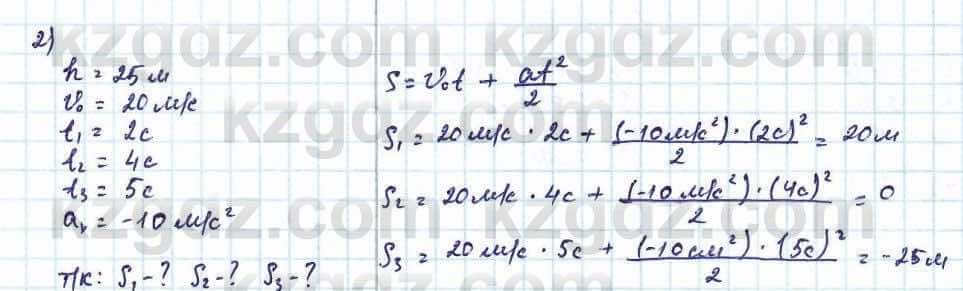 2)
h = 25 м
v₀ = 20 м/с
t₁ = 2с
t₂ = 4с
t₃ = 5с
aₓ = -10 м/с²
т/к: S₁ - ? S₂ - ? S₃ - ?
S = v₀t + at²/2
S₁ = 20 м/с · 2с + (-10 м/с²) · (2с)²/2 = 20 м
S₂ = 20 м/с · 4с + (-10 м/с²) · (4с)²/2 = 0
S₃ = 20 м/с · 5с + (-10 см²) · (5с)²/2 = -25 м
kzgdz.com kzgdz.com
kzgdz.com